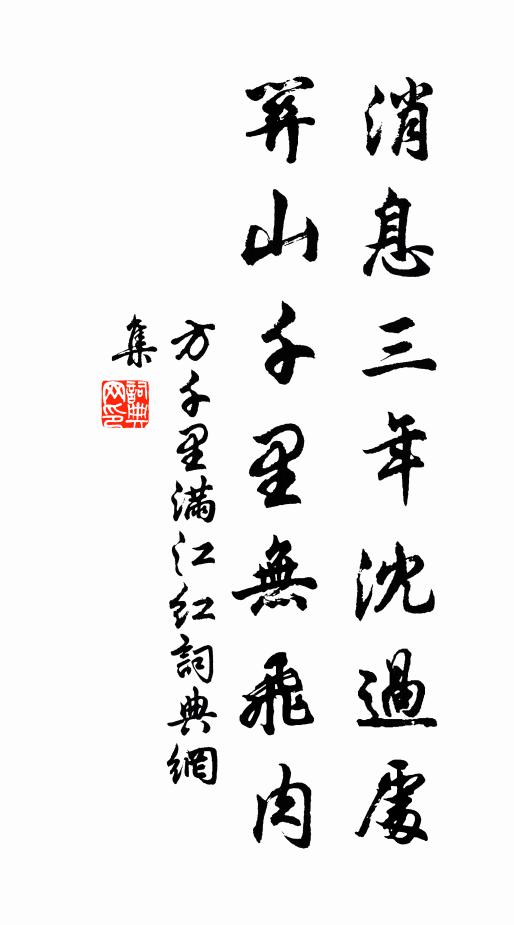 消息三年沈過處
關山千里無飛肉
方千里滿江紅詞典網
集
詞典
网印